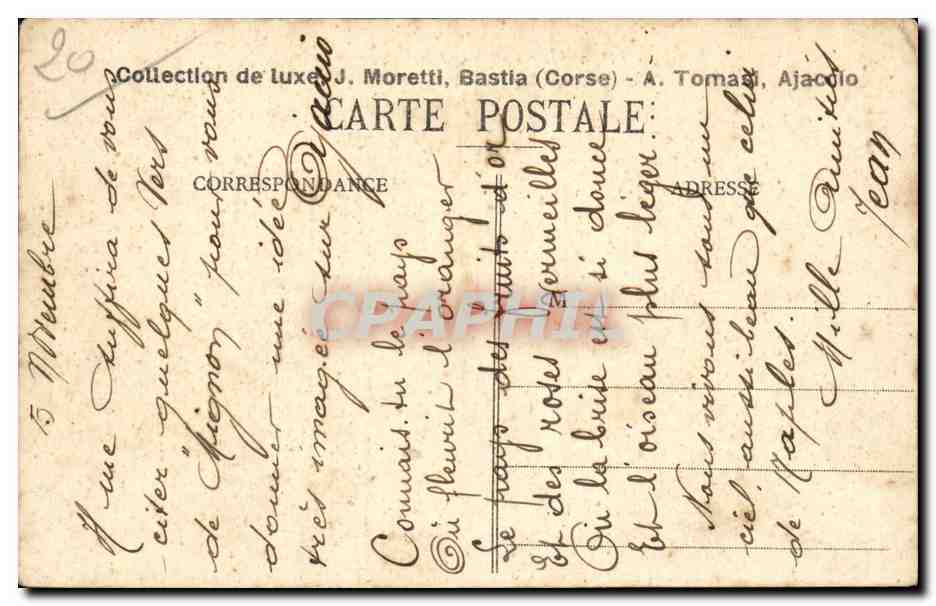 20
Collection de luxe, J. Moretti, Bastia (Corse) - A. Tomasi, Ajaccio
CARTE POSTALE
CORRESPONDANCE
ADRESSE
M
CPAPHIL
5 Novembre
Il me suffira de vous
citer quelques vers
de "Mignon" pour vous
donner une idée
très imagée sur Ajaccio
Connais-tu le pays
Où fleurit l'oranger
Le pays des fruits d'or
Et des roses vermeilles
Où la brise est si douce
Et l'oiseau plus léger
Nous vivons sous un
ciel aussi beau que celui
de Naples.
Mille Amitiés
Jean